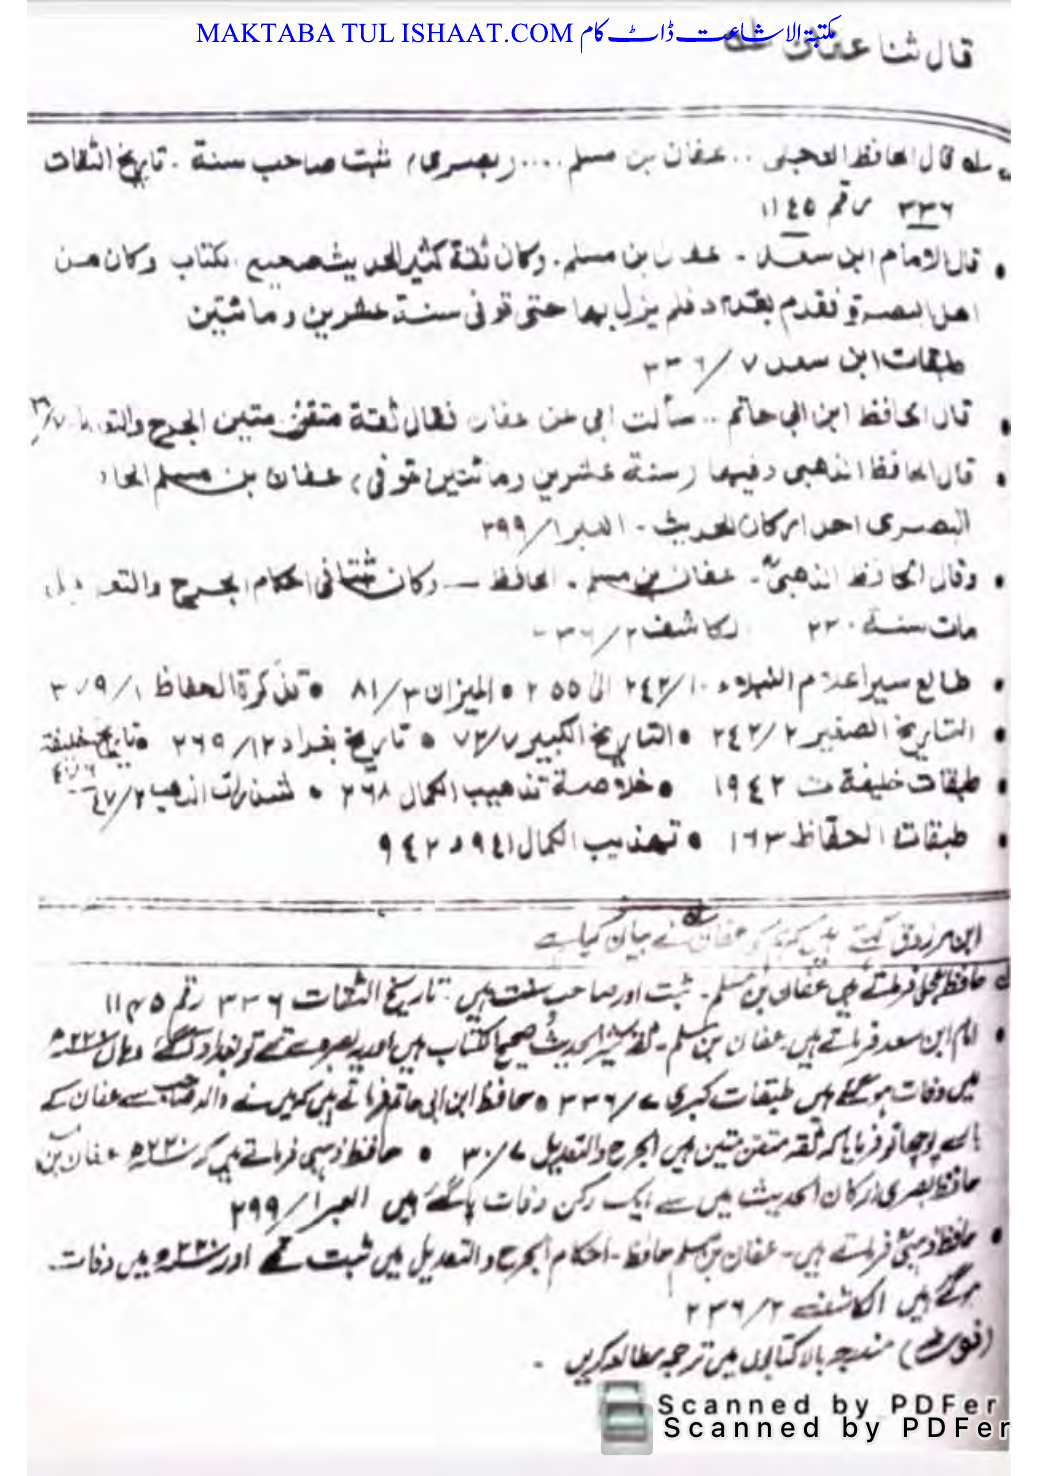 MAKTABA TUL ISHAAT.COM مکتبۃ الاشاعت ڈاٹ کام
قال ثنا عفان
قال الحافظ العجلی .. عفان بن مسلم .... (بصری) ثبت صاحب سنة . تاریخ الثقات
٣٣٦ رقم ١١٤٥
• قال الامام ابن سعد . عفان بن مسلم . وکان ثقة کثیر الحدیث صحیح الکتاب وکان من
اهل البصرة فقدم بغداد فلم یزل بها حتی توفی سنة عشرین ومائتین
طبقات ابن سعد ٧/٣٣٦
• قال الحافظ ابن ابی حاتم .. سألت ابی عن عفان فقال ثقة متقن متین الجرح والتعدیل ٧/
• قال الحافظ الذهبی وفیها (سنة عشرین ومائتین) توفی، عفان بن مسلم
البصری احد ارکان الحدیث . العبر ١/٢٩٩
• وقال الحافظ الذهبیؒ . عفان بن مسلم . الحافظ – وکان ثبتا فی احکام الجرح والتعدیل
مات سنة ٢٢٠ الکاشف ٢/٢٣٦
• طالع سیر اعلام النبلاء ١٠/٢٤٢ الی ٢٥٥ • المیزان ٣/٨١ • تذکرة الحفاظ ١/
• التاریخ الصغیر ٢/٣٤٢ • التاریخ الکبیر ٧/٧٢ • تاریخ بغداد ١٢/٢٦٩ • تاریخ خلیفة
• طبقات خلیفة ت ١٩٤٢ • خلاصة تذهیب الکمال ٢٦٨ • شذرات الذهب ٢/٤٧
• طبقات الحفاظ ١٦٣ • تهذیب الکمال ٩٤١ و ٩٤٢
ابن مرزوق کہتے ہیں کہ ہم کو عفان نے بیان کیا ہے
حافظ عجلی فرماتے ہیں عفان بن مسلم ۔ ثبت اور صاحب سنت ہیں . تاریخ الثقات ٣٣٦ رقم ١١٤٥
• امام ابن سعد فرماتے ہیں ۔ عفان بن مسلم ۔ ثقہ کثیر الحدیث صحیح الکتاب ہیں اور یہ بصرہ سے تھے تو بغداد آگئے وہاں ٢٢٠ھ
میں وفات ہوگئے ہیں طبقات کبری ٧/٣٣٦ • حافظ ابن ابی حاتم فرماتے ہیں کہ میں نے والد صاحب سے عفان کے
بارے پوچھا تو فرمایا کہ ثقہ متقن متین ہیں الجرح والتعدیل ٧/٣٠ • حافظ ذہبی فرماتے ہیں کہ ٢٢٠ھ عفان بن
حافظ بصری ارکان الحدیث میں سے ایک رکن وفات پاگئے ہیں العبر ١/٢٩٩
• حافظ ذہبیؒ فرماتے ہیں ۔ عفان بن مسلم حافظ ۔ احکام الجرح والتعدیل میں ثبت تھے اور ٢٢٠ھ میں وفات
ہوگئے ہیں الکاشف ٢/٢٣٦
(نوٹ) مندرجہ بالا کتابوں میں ترجمہ مطالعہ کریں ۔
Scanned by PDFer
Scanned by PDFer